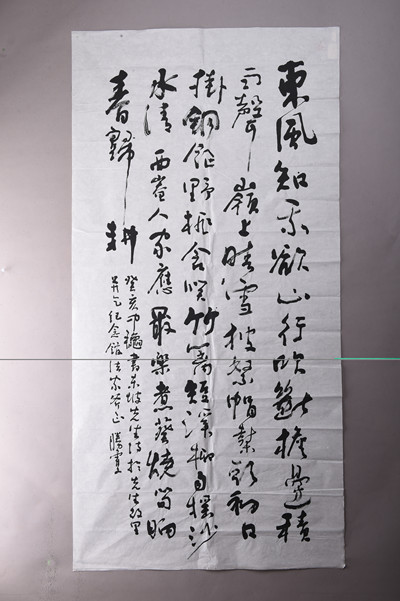 東風知我欲山行吹斷檐邊積
雨聲嶺上晴雪披絮帽樹頭初日
掛銅鉦野桃含笑竹籬短溪柳自搖沙
水清西菴人家應最樂煮葵燒筍餉
春歸耕
癸亥中穐書東坡先生詩於先生故里
并乞紀念館法家斧正